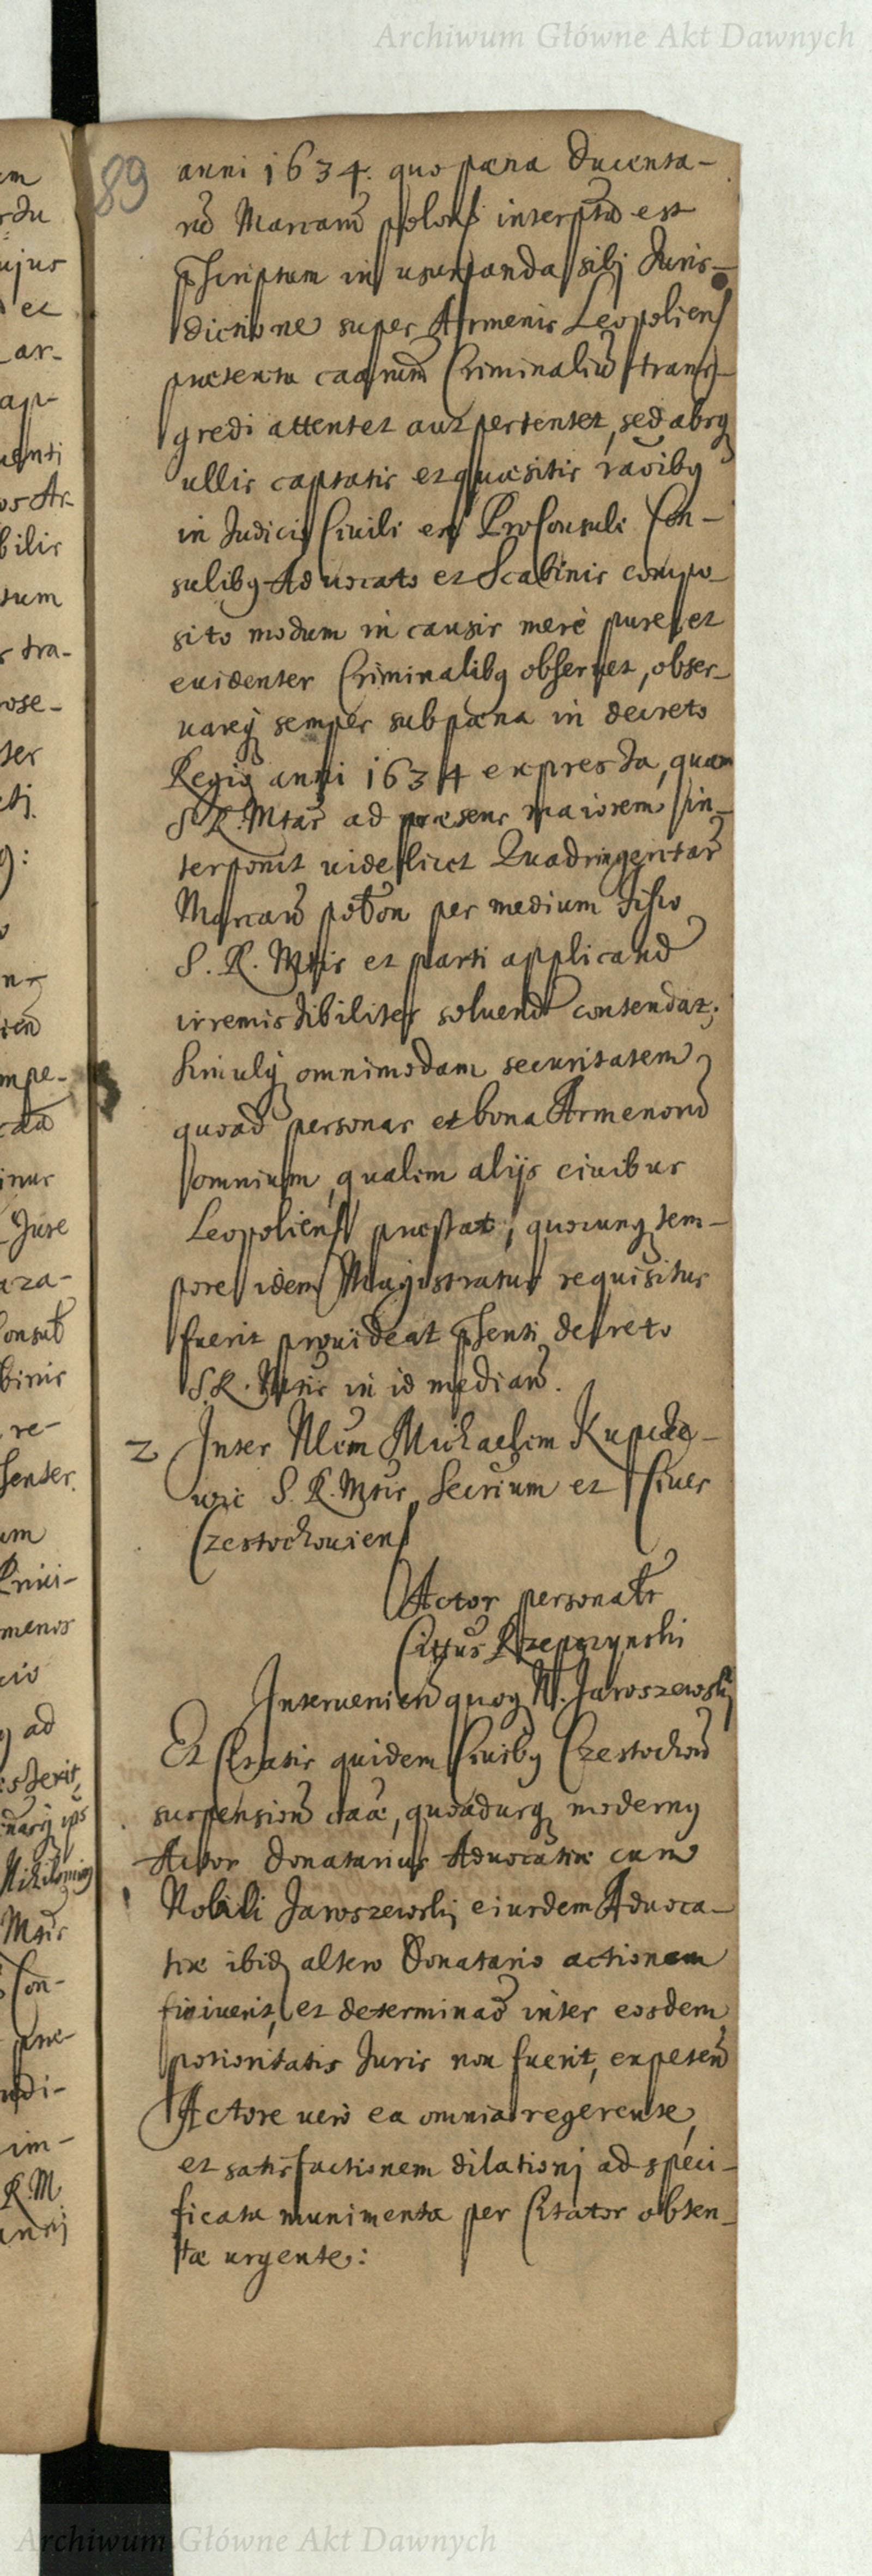 Archiwum Główne Akt Dawnych
89
anni 1634. quo pæna Ducenta-
rũ Marcarũ polon̄ interp̃ta est
p̃scriptum in usurpanda sibj Juris-
dictione super Armenis Leopolien̄
prætextu caarum Criminaliũ trans-
gredi attentet aut pertentet, sed absq
ullis captatis et quæsitis raõibq
in Judicio Civili ex ProConsuli Con-
sulibq Advocato et Scabinis compo-
sito modum in causis merè pure, et
euidenter Criminalibq obseruet, obser-
uareq semper sub pæna in decreto
Regio anni 1634 expressa, quam
S R. Mtas̃ ad præsens maiorem in-
terponit uidelicet Quadringentar̃
Marcarũ polon per medium fisco
S. R. Mtis et parti applicand
irremissibiliter soluend contendat;
simulq omnimodam securitatem
quoad personas et bona Armenorũ
omnium, qualem alijs ciuibus
Leopolien̄ præstat, quocunq tem-
pore idem Magistratus requisitus
fuerit prouideat p̃senti decreto
S. R. Mtis in id median̄.
2 Inter Nlem Michaelem Kupicze-
wic S. R. Mtis Secrium et Ciues
Czestochouien̄
Actor personalr̃
Cittus Rzepczynski
Interuenien̄ quoq N. Jaroszewskj
Et Citatis quidem Ciuibq Czestochou̇
suspension̄ caæ, quoadusq modernq
Actor donatarius Aduocatiæ cum
Nobili Jaroszewskj eiusdem Aduoca-
tiæ ibid altero Donatario actionem
finiuerit, et determinaõ inter eosdem
potioritatis Juris non fuerit, expeten̄
Actore uerò ea omnia regerente,
et satisfactionem dilationj ad speci-
ficata munimenta per Citator obten-
tæ urgente:
Archiwum Główne Akt Dawnych